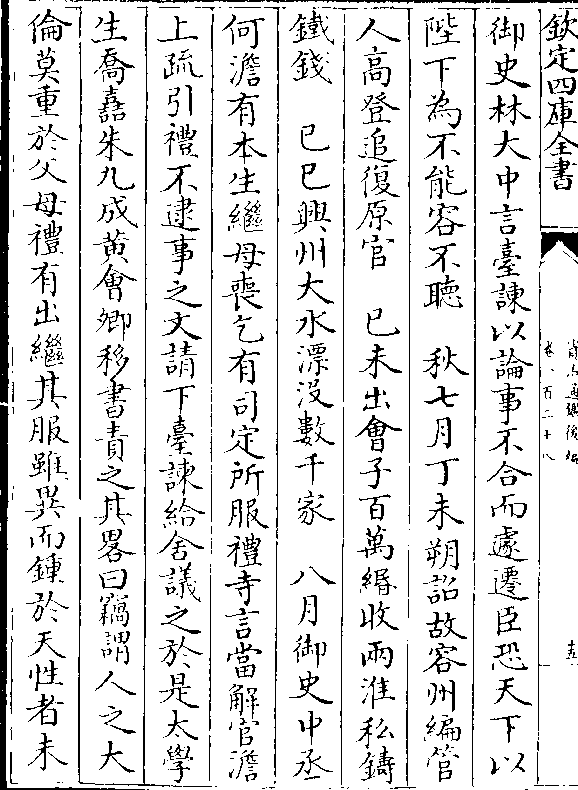 欽定四庫全書
資治通鑑後編
卷一百二十八
五
御史林大中言臺諫以論事不合而遽遷臣恐天下以
陛下為不能容不聽　秋七月丁未朔詔故容州編管
人高登追復原官　己未出會子百萬緡收兩淮私鑄
鐵錢　己巳興州大水漂沒數千家　八月御史中丞
何澹有本生繼母喪乞有司定所服禮寺言當解官澹
上疏引禮不逮事之文請下臺諫給舍議之於是太學
生喬嚞朱九成黃會卿移書責之其畧曰竊謂人之大
倫莫重於父母禮有出繼其服雖異而鍾於天性者未